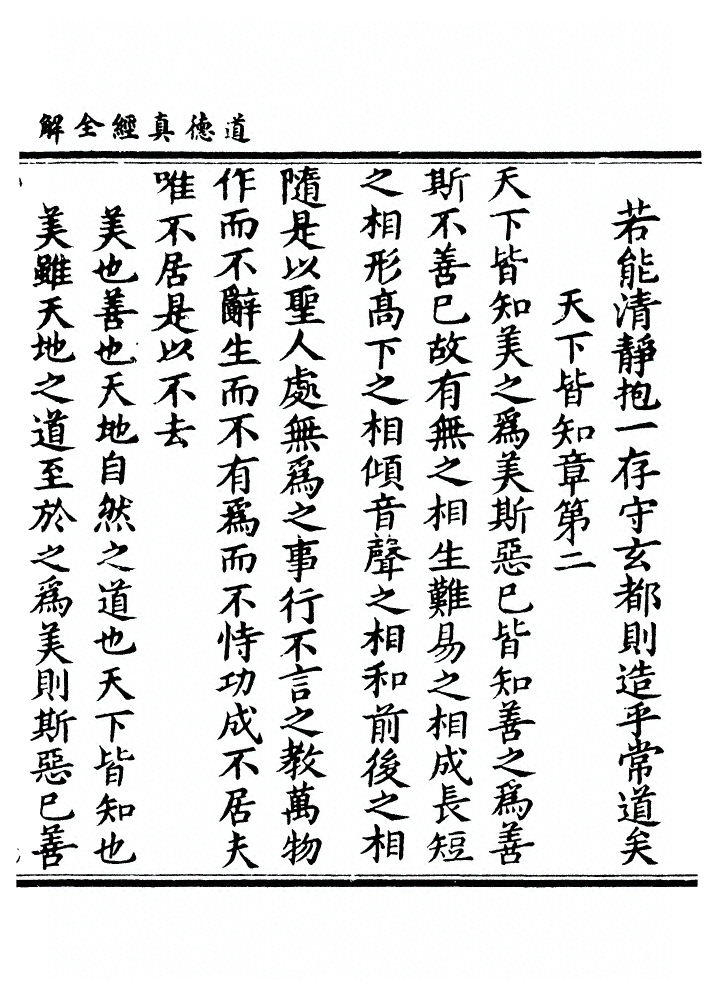 道德真經全解
若能清靜抱一存守玄都則造乎常道矣
天下皆知章第二
天下皆知美之爲美斯惡已皆知善之爲善
斯不善已故有無之相生難易之相成長短
之相形髙下之相傾音聲之相和前後之相
隨是以聖人處無爲之事行不言之教萬物
作而不辭生而不有爲而不恃功成不居夫
唯不居是以不去
美也善也天地自然之道也天下皆知也
美雖天地之道至於之爲美則斯惡已善